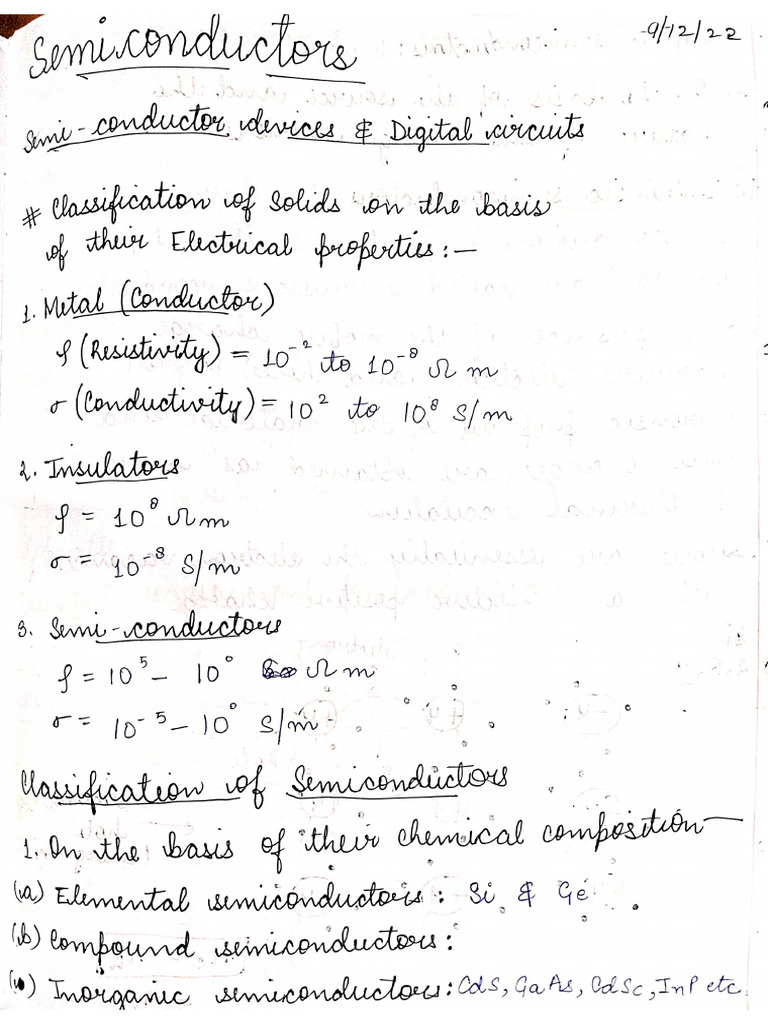 Semiconductors
-9/12/22
Semi-conductor devices & Digital circuits
# Classification of Solids on the basis
of their Electrical properties:—
1. Metal (Conductor)
ρ (Resistivity) = 10⁻² to 10⁻⁸ Ω m
σ (Conductivity) = 10² to 10⁸ S/m
2. Insulators
ρ = 10⁸ Ω m
σ = 10⁻⁸ S/m
3. Semi-conductors
ρ = 10⁵ – 10⁰ Ω m
σ = 10⁻⁵ – 10⁰ S/m
Classification of Semiconductors
1. On the basis of their chemical composition—
(a) Elemental semiconductors: Si & Ge
(b) Compound semiconductors:
Inorganic semiconductors: CdS, GaAs, CdSc, InP etc.